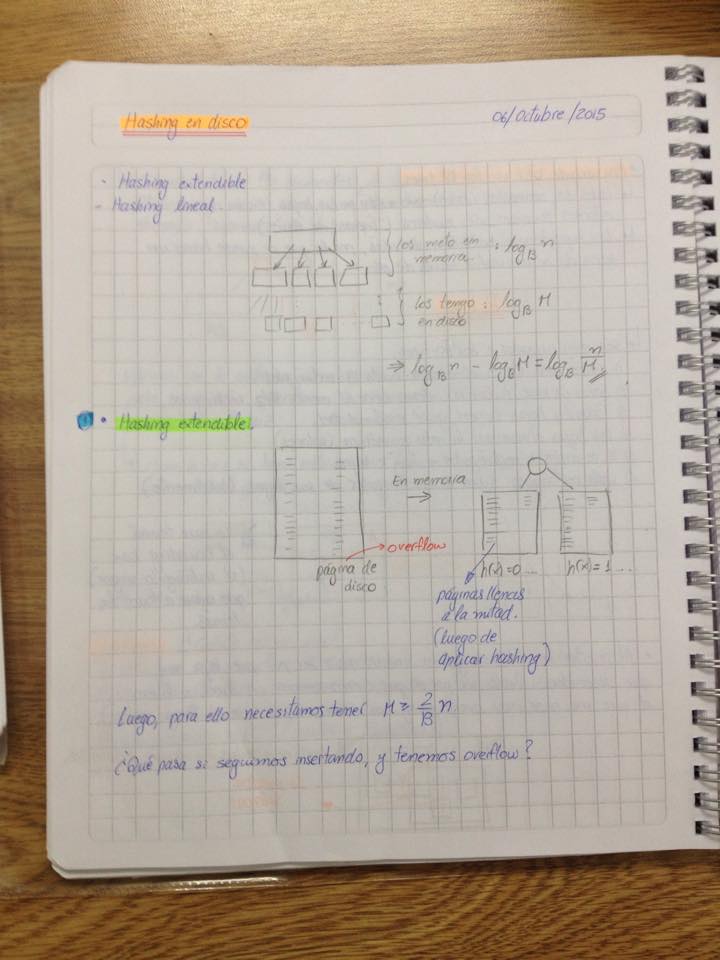 Hashing en disco
06/Octubre/2015
· Hashing extendible
- Hashing lineal.
los meto en memoria : log_B n
los tengo en disco : log_B M
⇒ log_B n - log_B M = log_B n/M
· Hashing extendible.
En memoria
→
overflow
página de
disco
h(x)=0...
h(x)=1...
páginas llenas
a la mitad.
(luego de
aplicar hashing)
Luego, para ello necesitamos tener M ≥ 2/B n.
¿Qué pasa si seguimos insertando, y tenemos overflow?